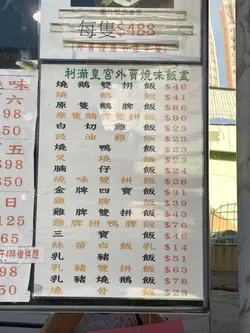 每隻$488
利滿皇宮外賣燒味飯盒
燒鵝雙拼飯 $46
燒鵝飯 $41
原隻鵝髀飯 $86
原隻鵝髀雙拼飯 $96
白切雞飯 $23
豉油雞飯 $23
燒鴨飯 $22
叉燒飯 $23
腩仔飯 $24
燒味雙拼飯 $28
金牌四寶飯 $31
雞髀飯 $43
雞髀雙拼飯 $45
鴨髀雙拼飯 $76
四寶 $51
絲苗白飯 $14
乳豬飯 $51
乳豬雙拼飯 $63
乳豬燒鵝飯 $78
燒骨飯 $23
燒味
六
98
五
98
日
125
175
後供應
98